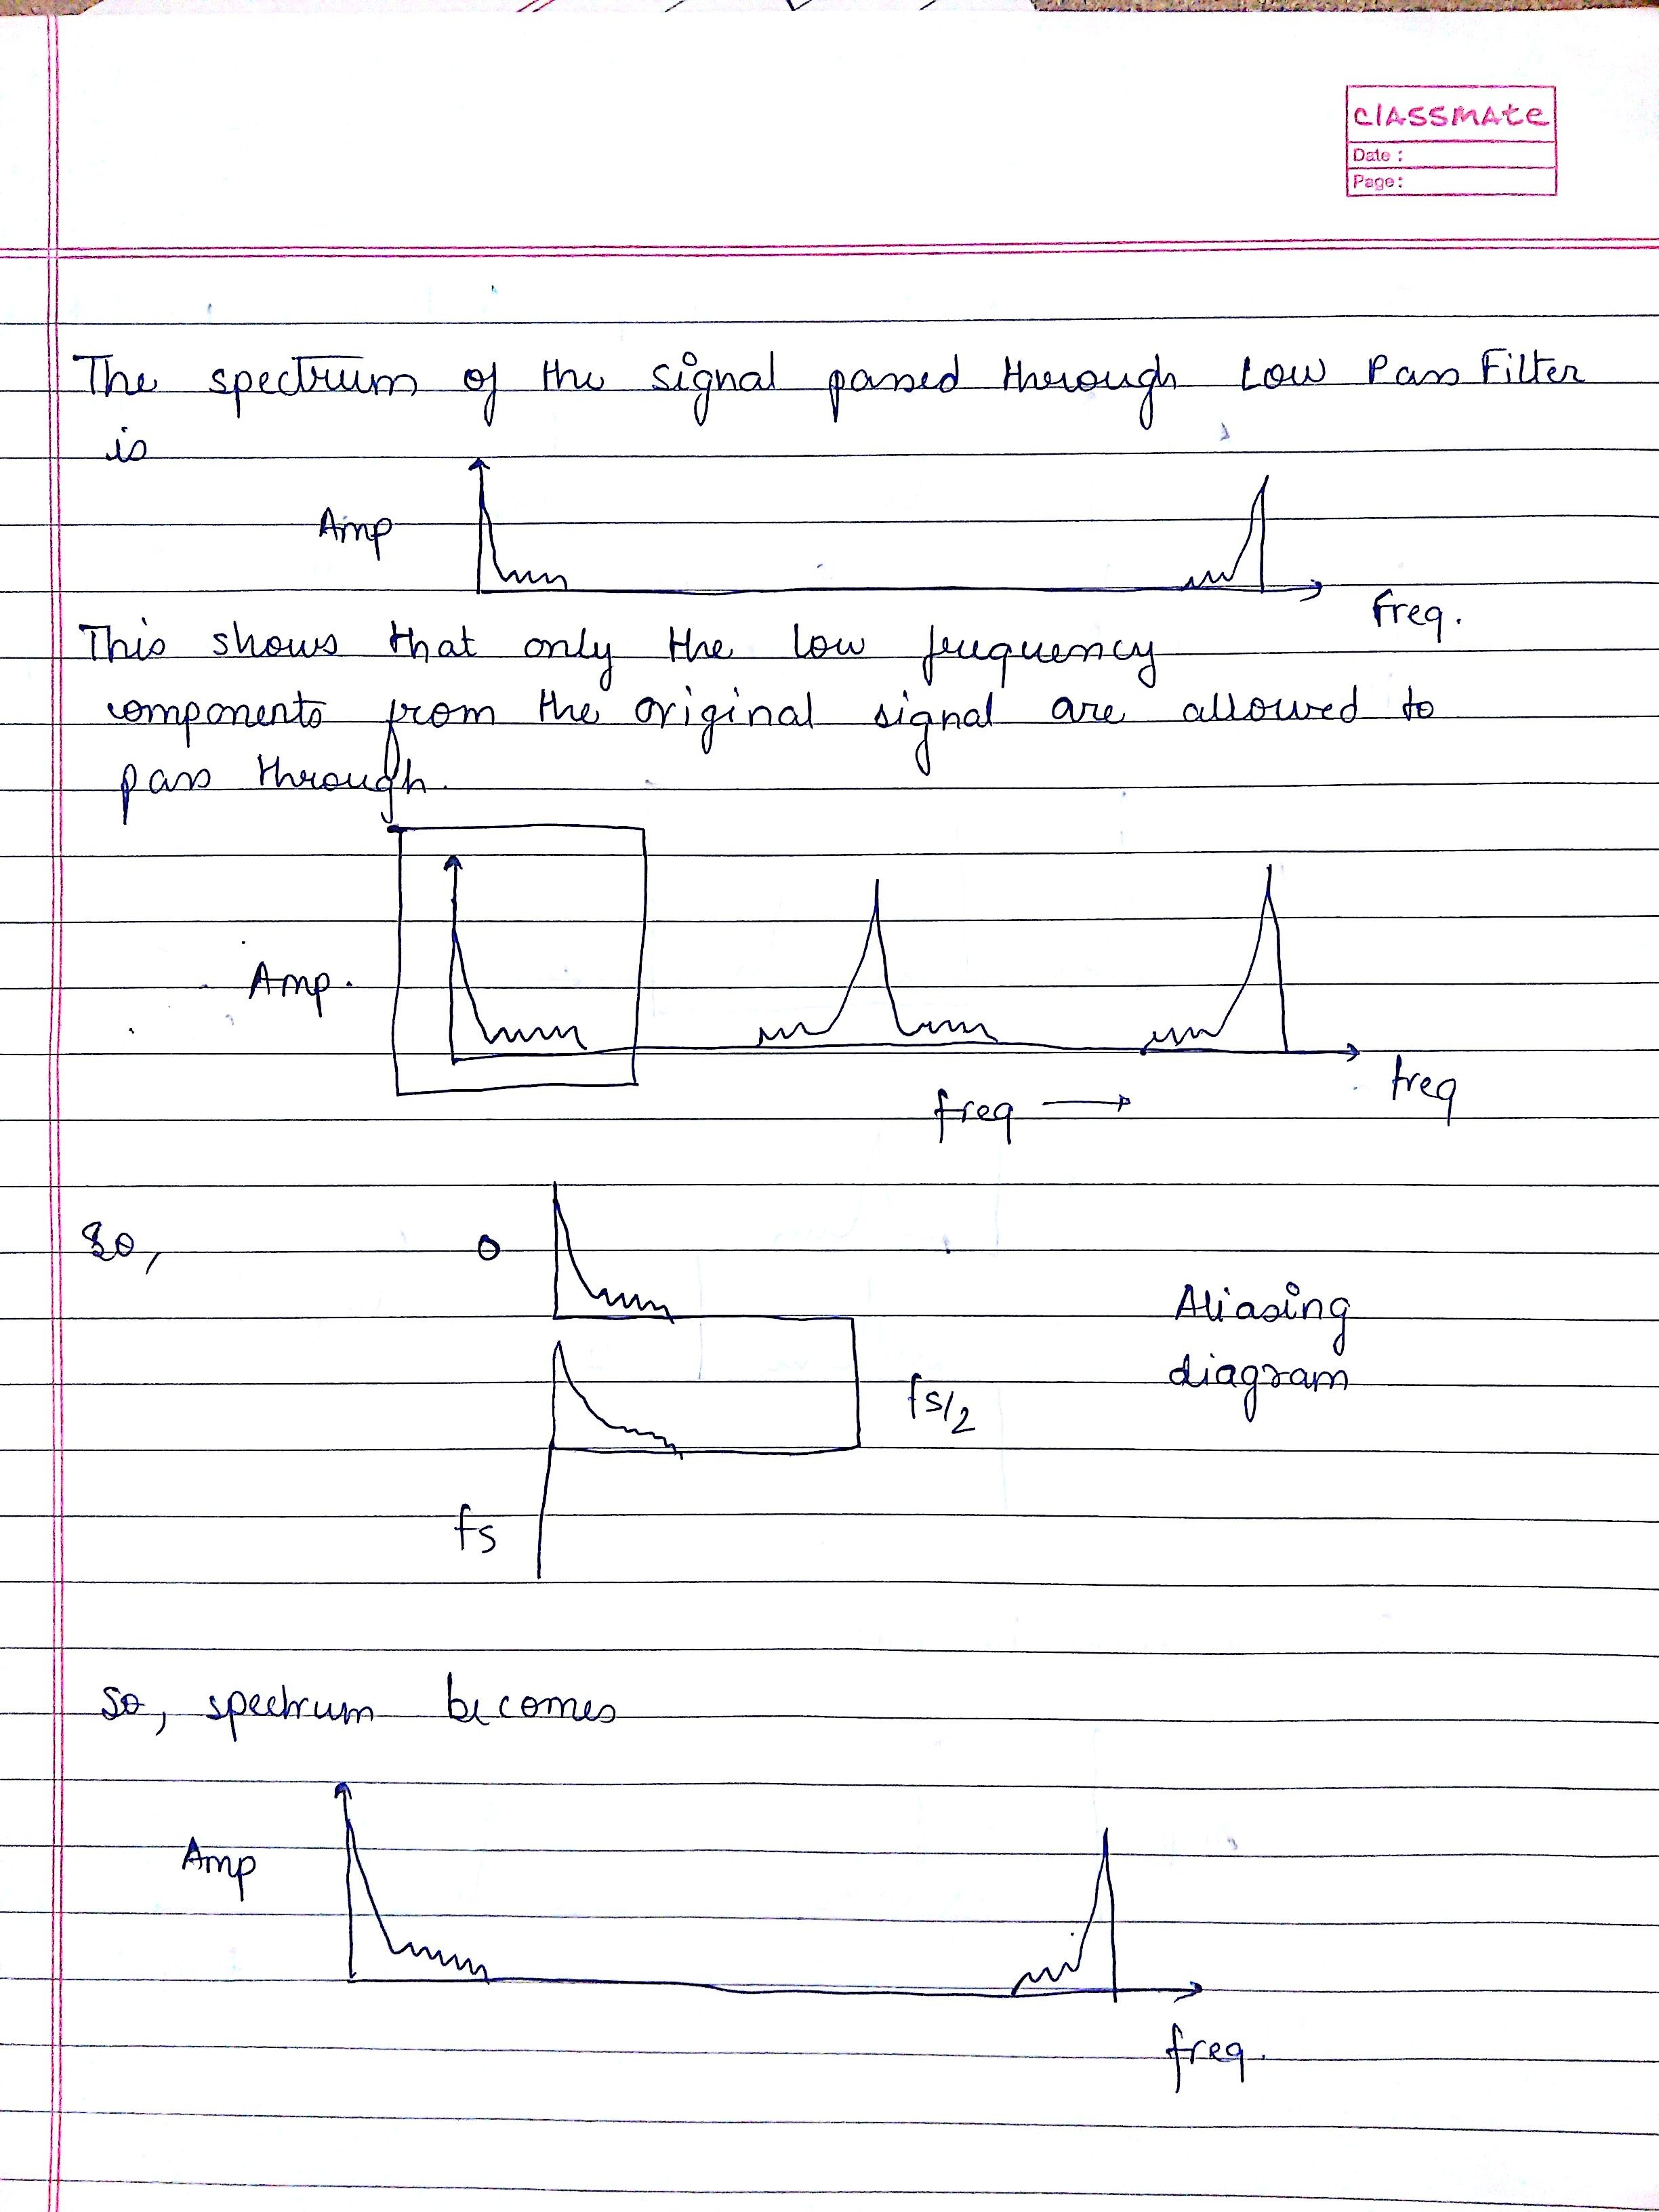 classmate
Date :
Page:
The spectrum of the signal passed through Low Pass Filter
is
Amp
Freq.
This shows that only the low frequency
components from the original signal are allowed to
pass through.
Amp.
freq
freq
So,
0
Aliasing
diagram
fs/2
fs
So, spectrum becomes
Amp
freq.